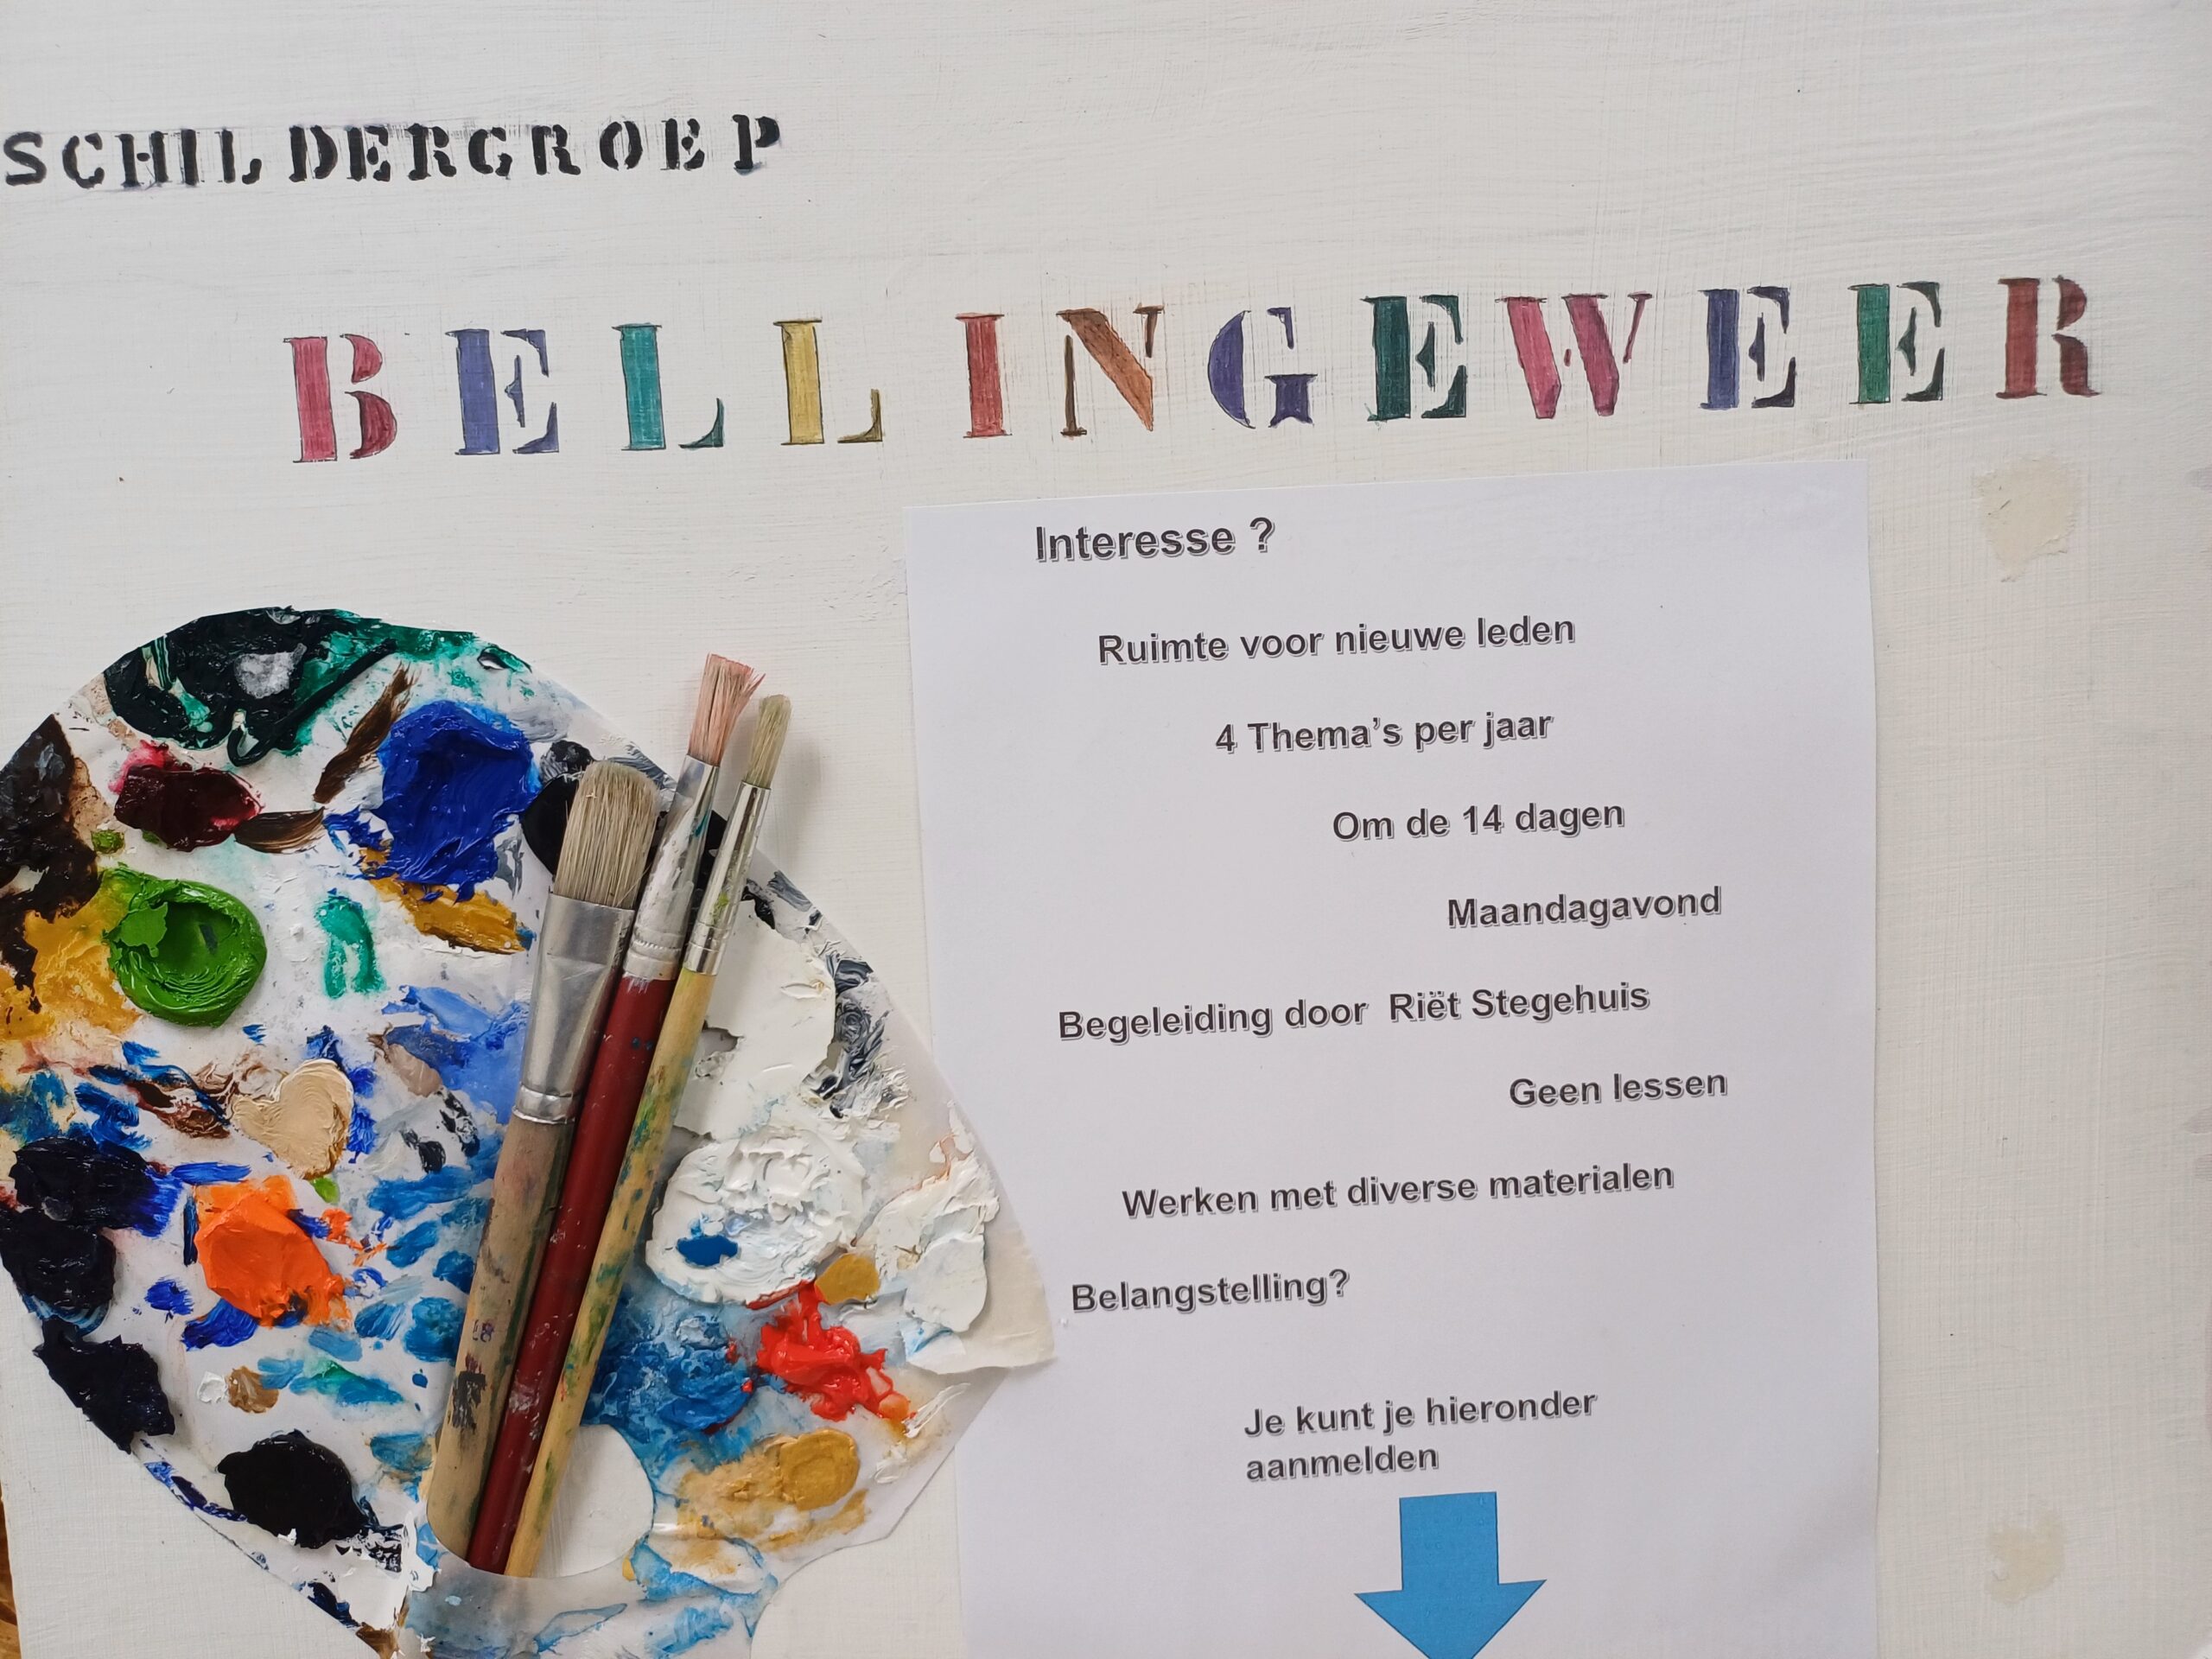 SCHILDERGROEP
BELLINGEWEER
Interesse ?
Ruimte voor nieuwe leden
4 Thema's per jaar
Om de 14 dagen
Maandagavond
Begeleiding door Riët Stegehuis
Geen lessen
Werken met diverse materialen
Belangstelling?
Je kunt je hieronder
aanmelden
18